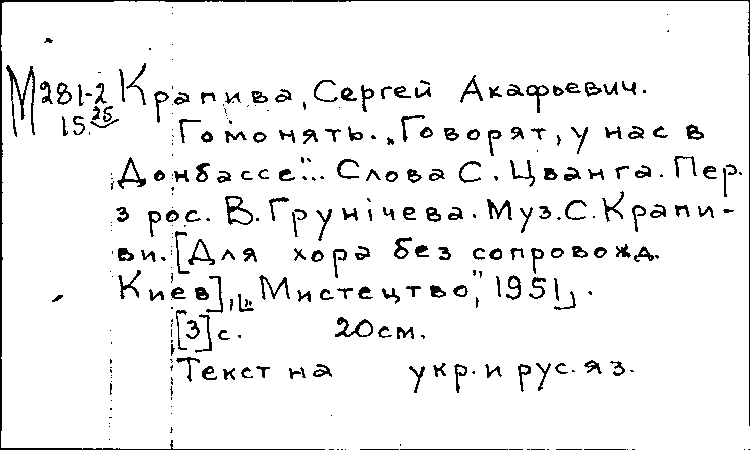 М 281-2 Крапива, Сергей Акафьевич.
15. 25 Гомонять. „Говорят, у нас в
Донбассе"... Слова С. Цванга. Пер.
з рос. В. Грунічева. Муз. С. Крапи-
ви. [Для хора без сопровожд.
Киев], „Мистецтво", 1951.
[3] с. 20 см.
Текст на укр. и рус. яз.